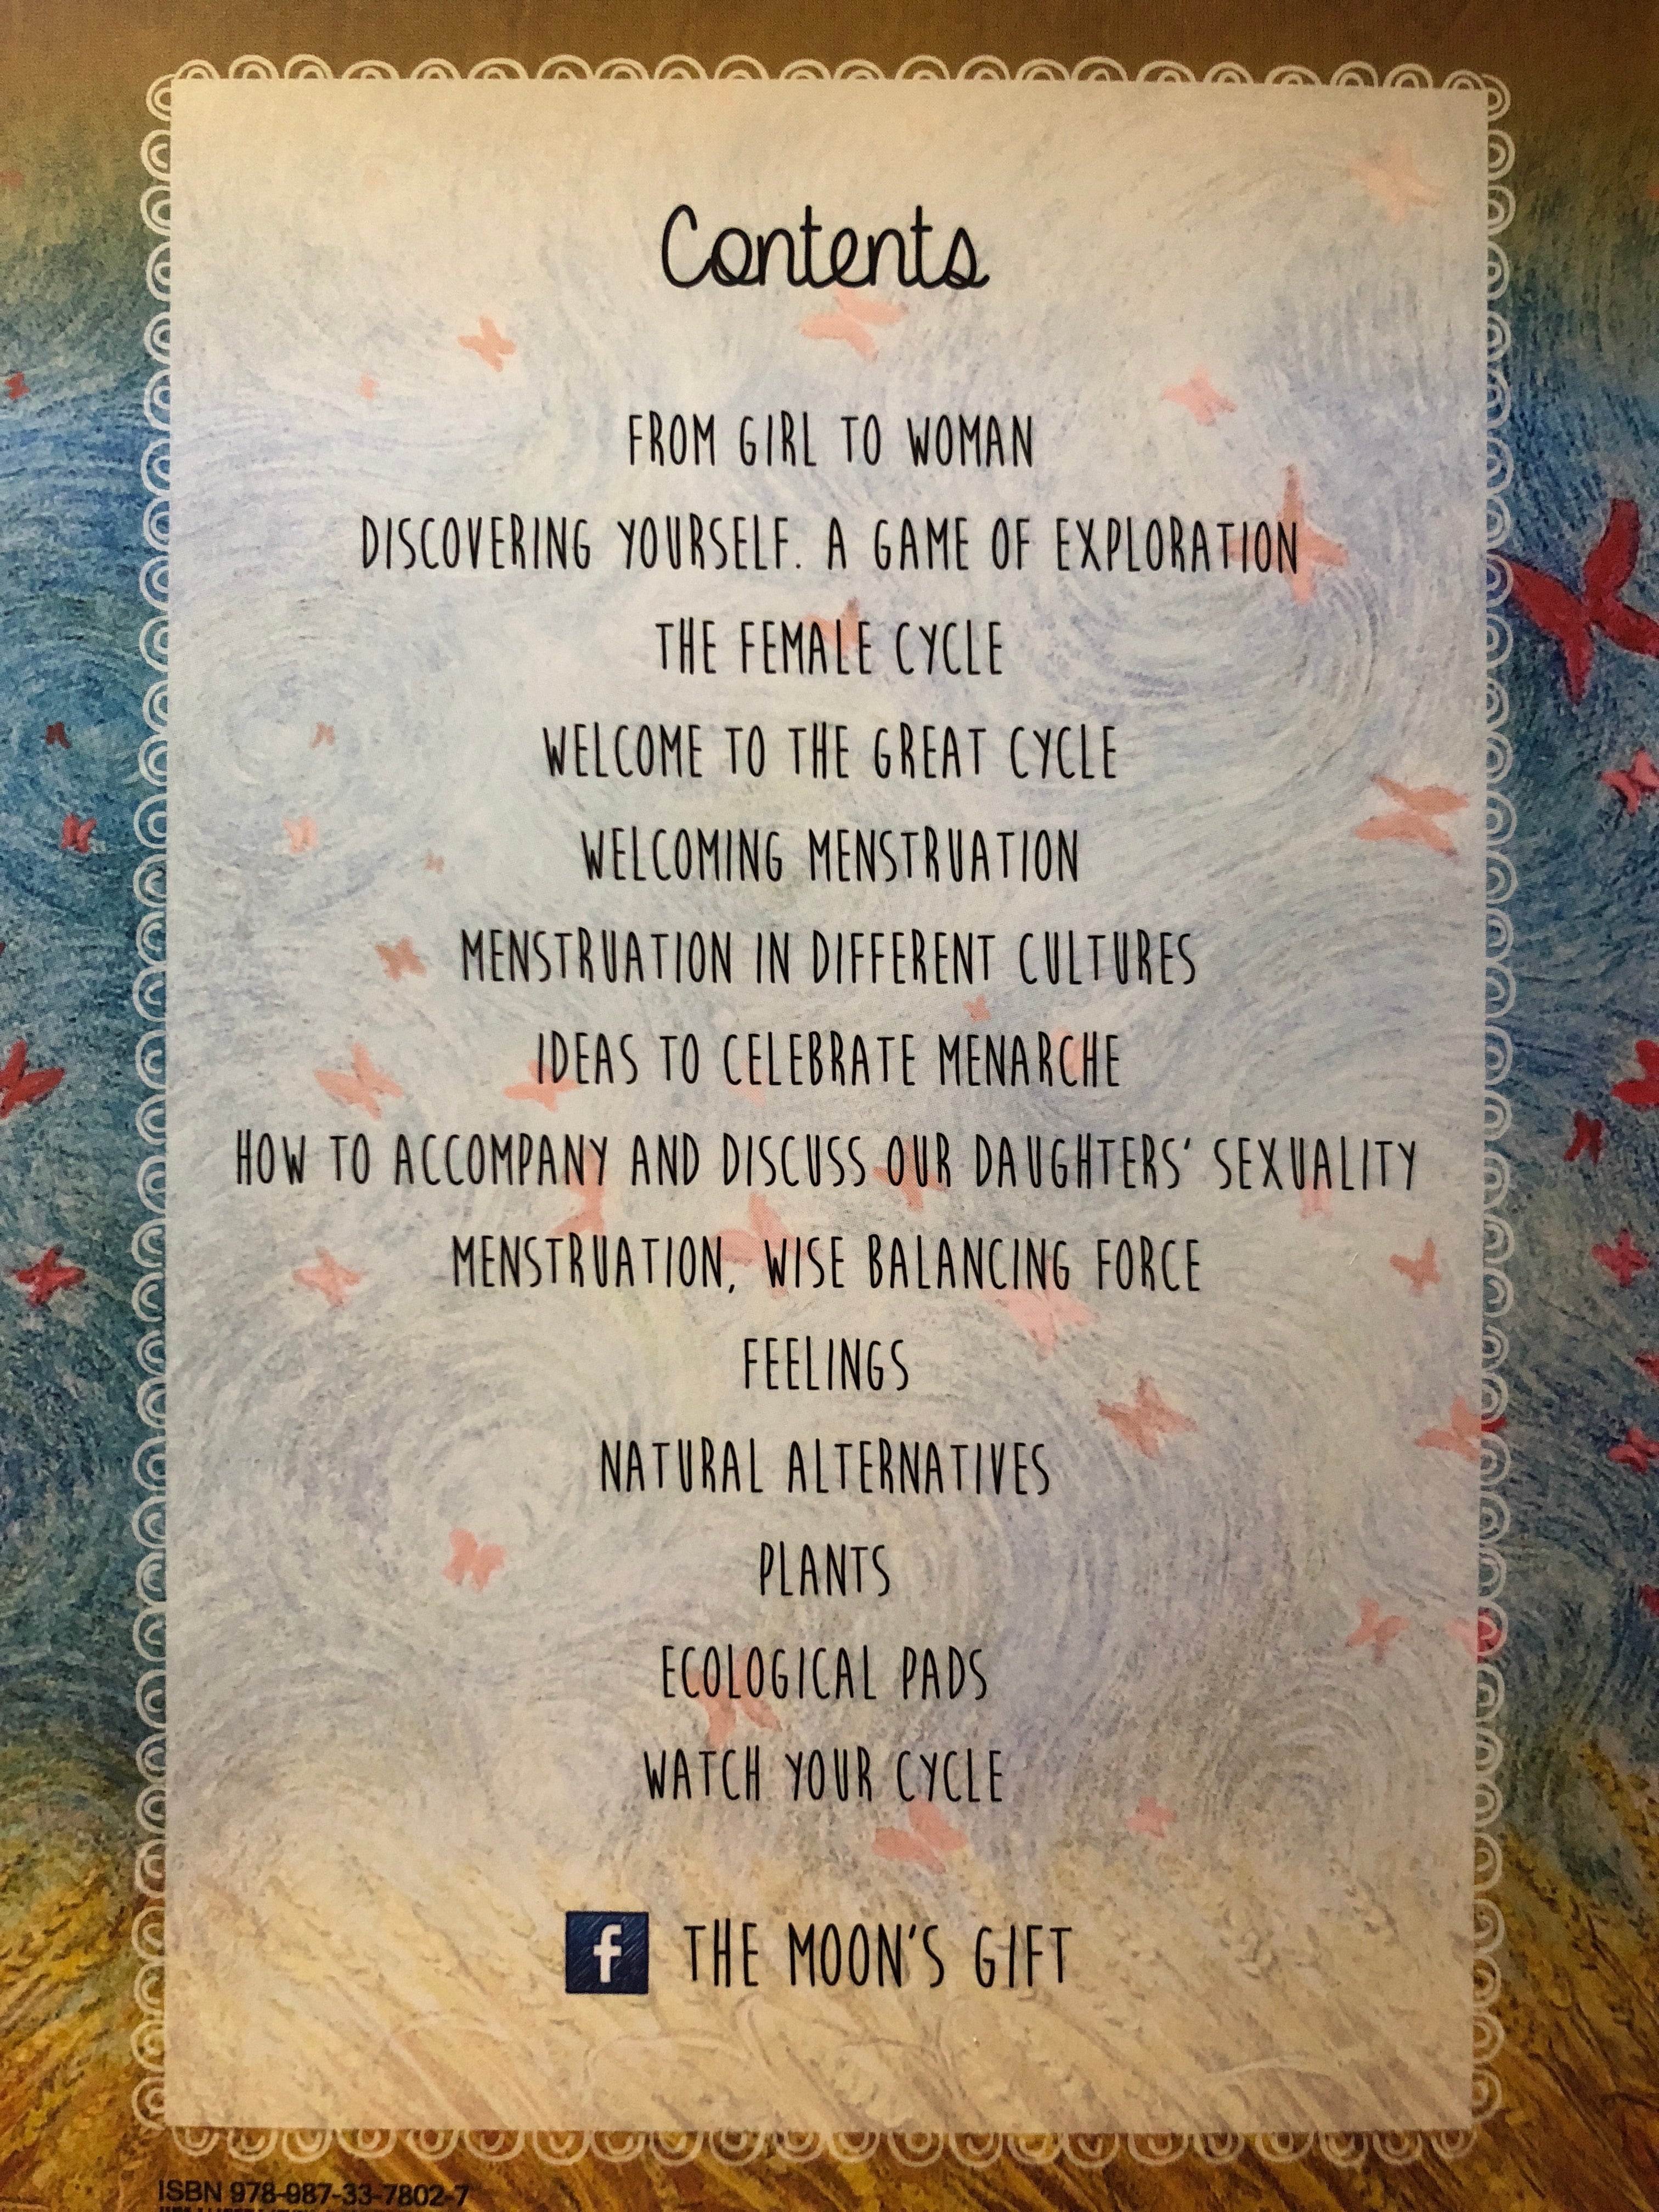 Contents
FROM GIRL TO WOMAN
DISCOVERING YOURSELF. A GAME OF EXPLORATION
THE FEMALE CYCLE
WELCOME TO THE GREAT CYCLE
WELCOMING MENSTRUATION
MENSTRUATION IN DIFFERENT CULTURES
IDEAS TO CELEBRATE MENARCHE
HOW TO ACCOMPANY AND DISCUSS OUR DAUGHTERS' SEXUALITY
MENSTRUATION, WISE BALANCING FORCE
FEELINGS
NATURAL ALTERNATIVES
PLANTS
ECOLOGICAL PADS
WATCH YOUR CYCLE
f THE MOON'S GIFT
ISBN 978-987-33-7802-7